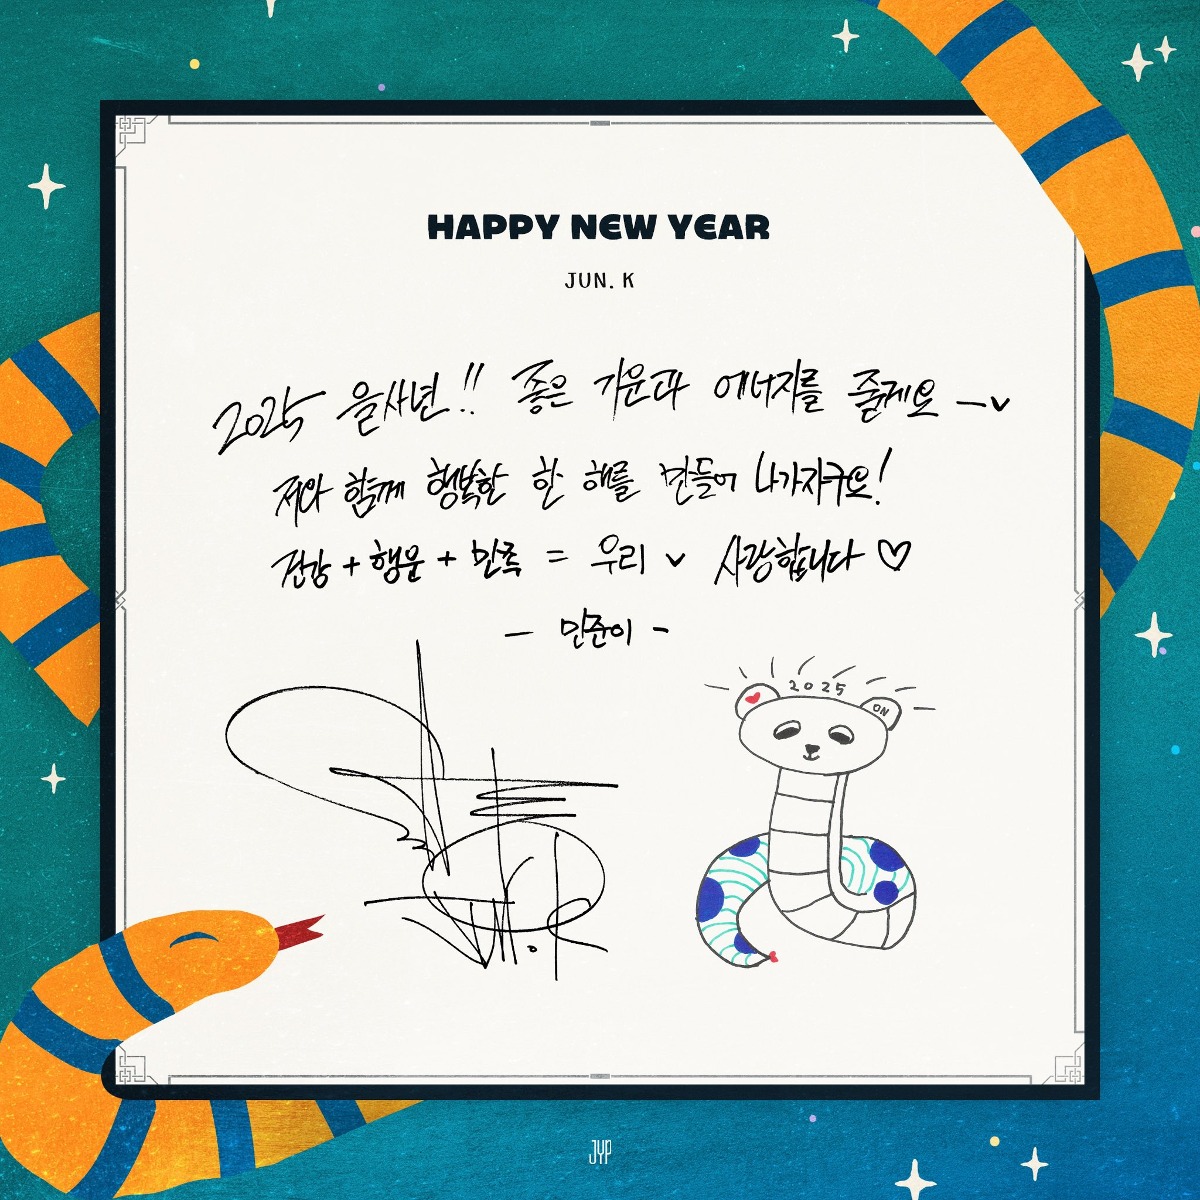 HAPPY NEW YEAR
JUN. K
2025 을사년!! 좋은 기운과 에너지를 줄게요 ―v
저와 함께 행복한 한 해를 만들어 나가자구요!
건강 + 행운 + 만족 = 우리 v 사랑합니다 ♡
- 민준이 -
2025
ON
Jun. K
JYP